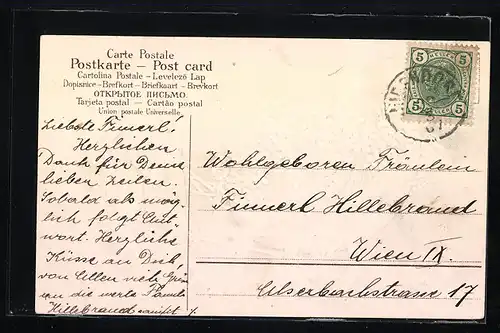 Carte Postale
Postkarte — Post card
Cartolina Postale – Levelező Lap
Dopisnice – Brefkort – Briefkaart – Brevkort
ОТКРЫТОЕ ПИСЬМО.
Tarjeta postal – Cartão postal
Union postale Universelle.
5 5
5 5
Liebste Finnerl!
Herzlichen
Dank für Deine
lieben Zeilen.
Sobald als mög-
lich folgt Ant
wort. Herzliche
Küsse an Dich,
von Allen viele Grüße
an die werte Familie
Hillebrand
Wohlgeboren Fräulein
Finnerl Hillebrand
Wien IX.
Alserbachstrasse 17